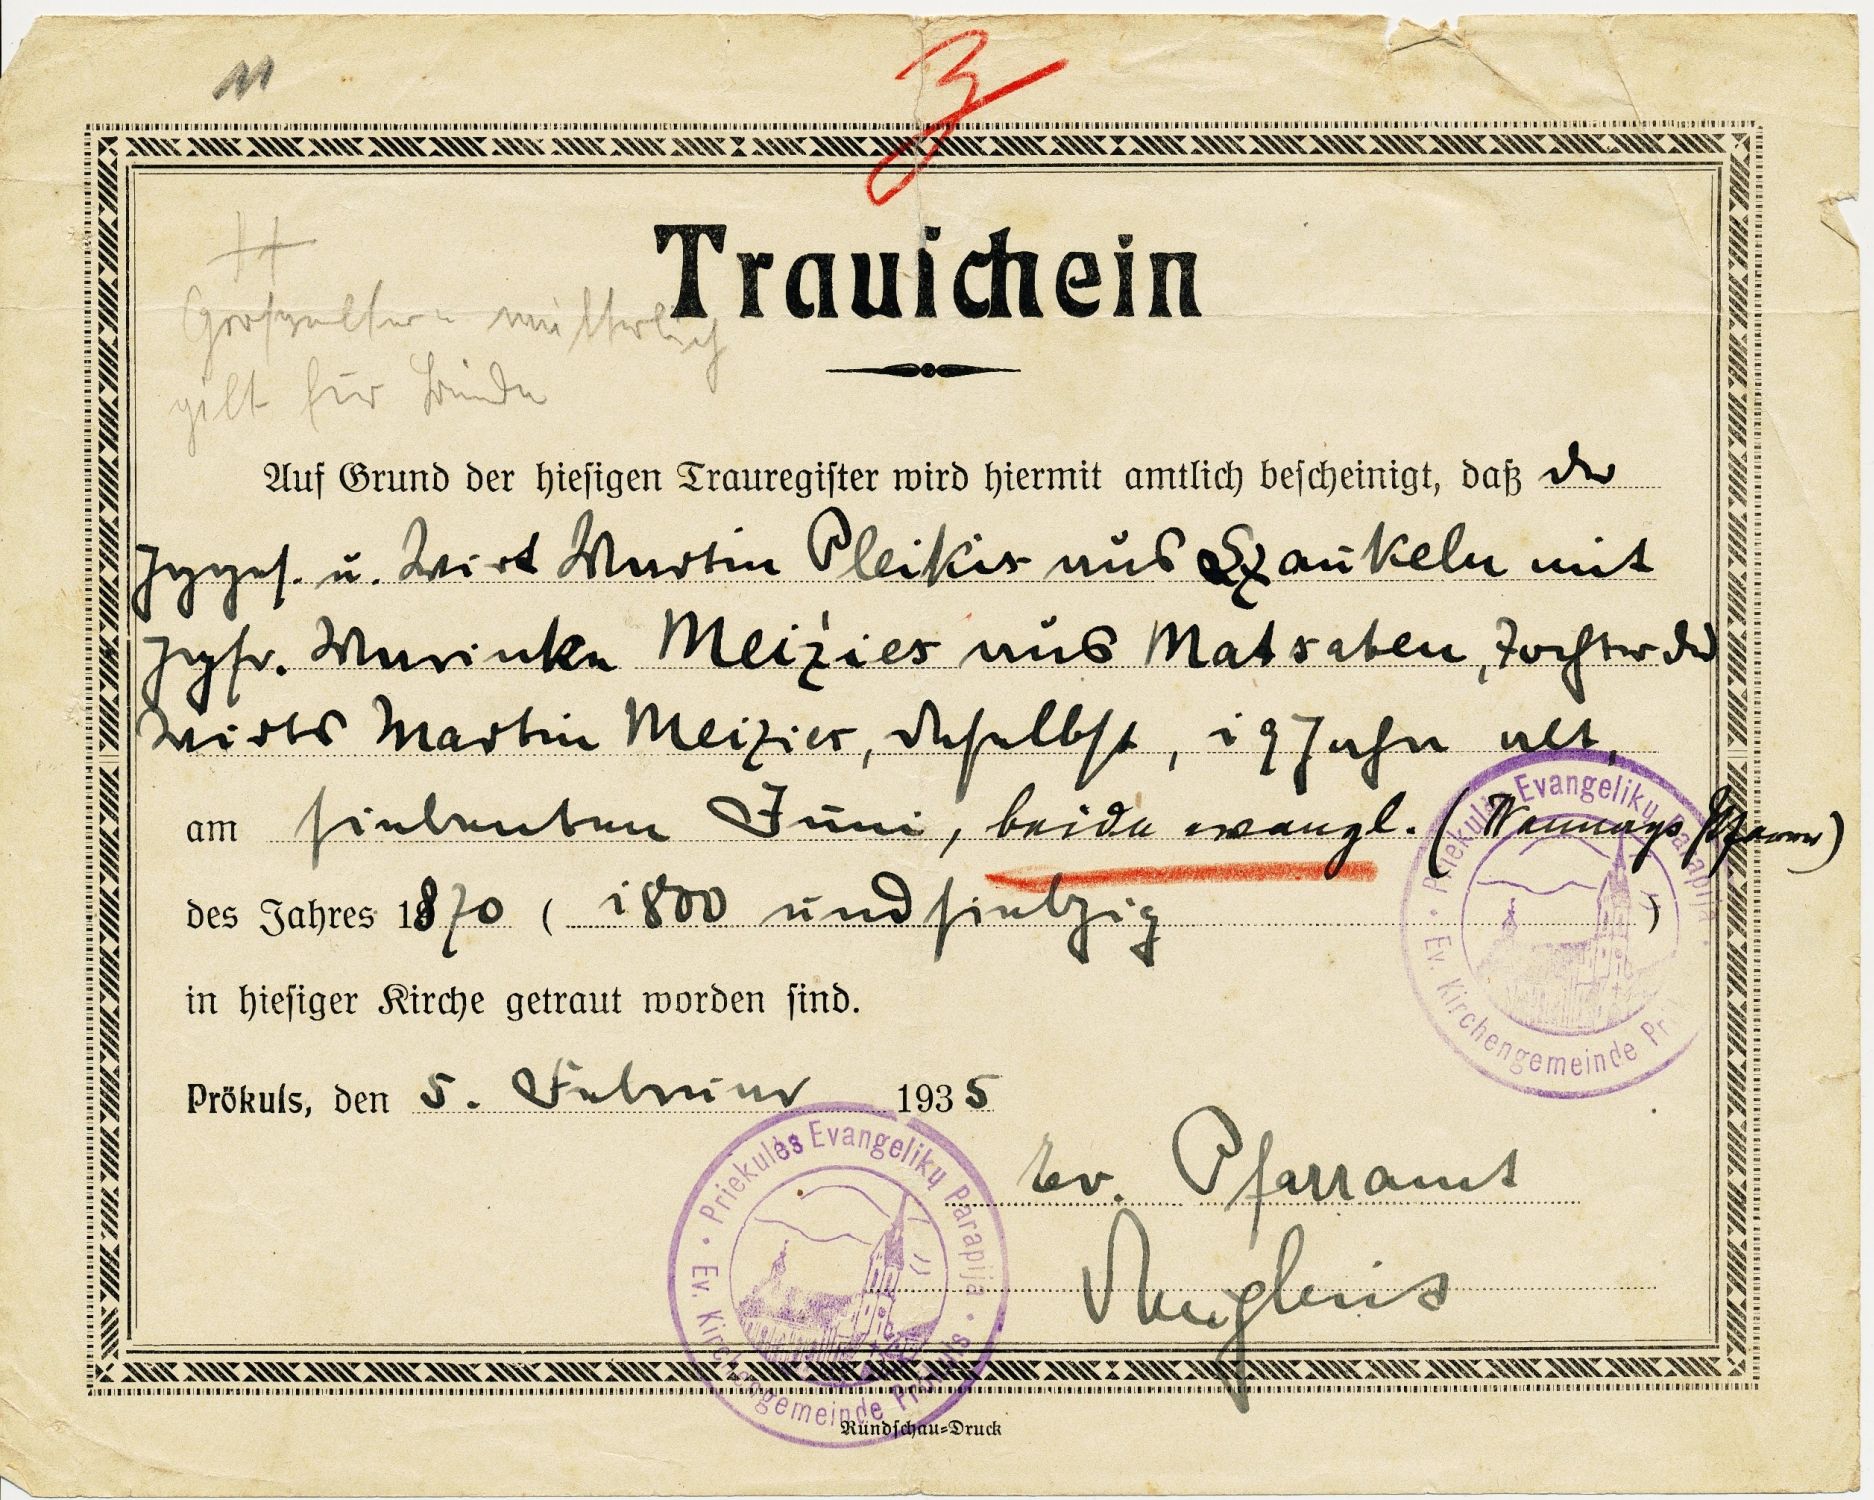 11
3
Trauschein
Großeltern mütterlich
gilt für beide
Auf Grund der hiesigen Trauregister wird hiermit amtlich bescheinigt, daß der
Jggs. u. Wirt Martin Pleikis aus Szaukeln mit
Jgfr. Marinke Meižies aus Matzaten, Tochter des
Wirts Martin Meizies, daselbst, 19 Jahre alt,
am siebenten Juni, beide evangl. ( Pfarrer)
des Jahres 1870 ( 1800 undsiebzig )
in hiesiger Kirche getraut worden sind.
Prökuls, den 5. Februar 1935
Ev. Pfarramt
Priekulės Evangelikų Parapija
Ev. Kirchengemeinde Prökuls
Priekulės Evangelikų Parapija
Ev. Kirchengemeinde Prökuls
Rundschau=Druck